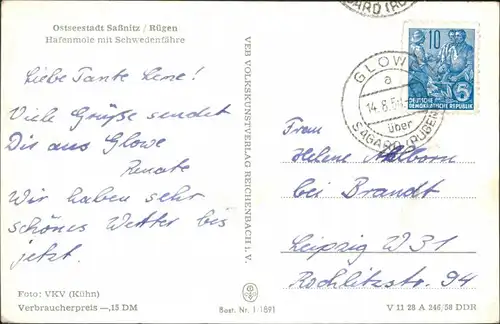 Ostseestadt Saßnitz / Rügen
Hafenmole mit Schwedenfähre
Liebe Tante Lene!
Viele Grüße sendet
Dir aus Glowe
Renate
Wir haben sehr
schönes Wetter bis
jetzt.
Foto: VKV (Kühn)
Verbraucherpreis —,15 DM
VEB VOLKSKUNSTVERLAG REICHENBACH i. V.
Best. Nr. 1/1691
GLOWE
a
14.8.
über
SAGARD (RÜGEN)
10
5
DEUTSCHE
DEMOKRATISCHE REPUBLIK
Frau
Helene Ahlborn
bei Brandt
Leipzig W 31
Rochlitzstr. 94
V 11 28 A 246/58 DDR